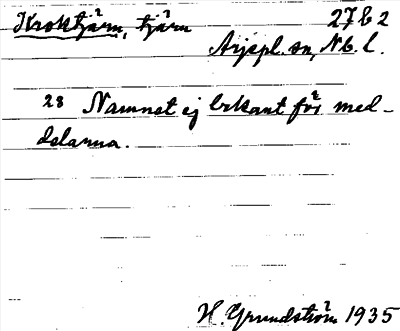 Kroktjärn, tjärn 27 b 2
Arjepl. sn, Nb. l.
28 Namnet ej bekant för med-
delarna.
H. Grundström 1935